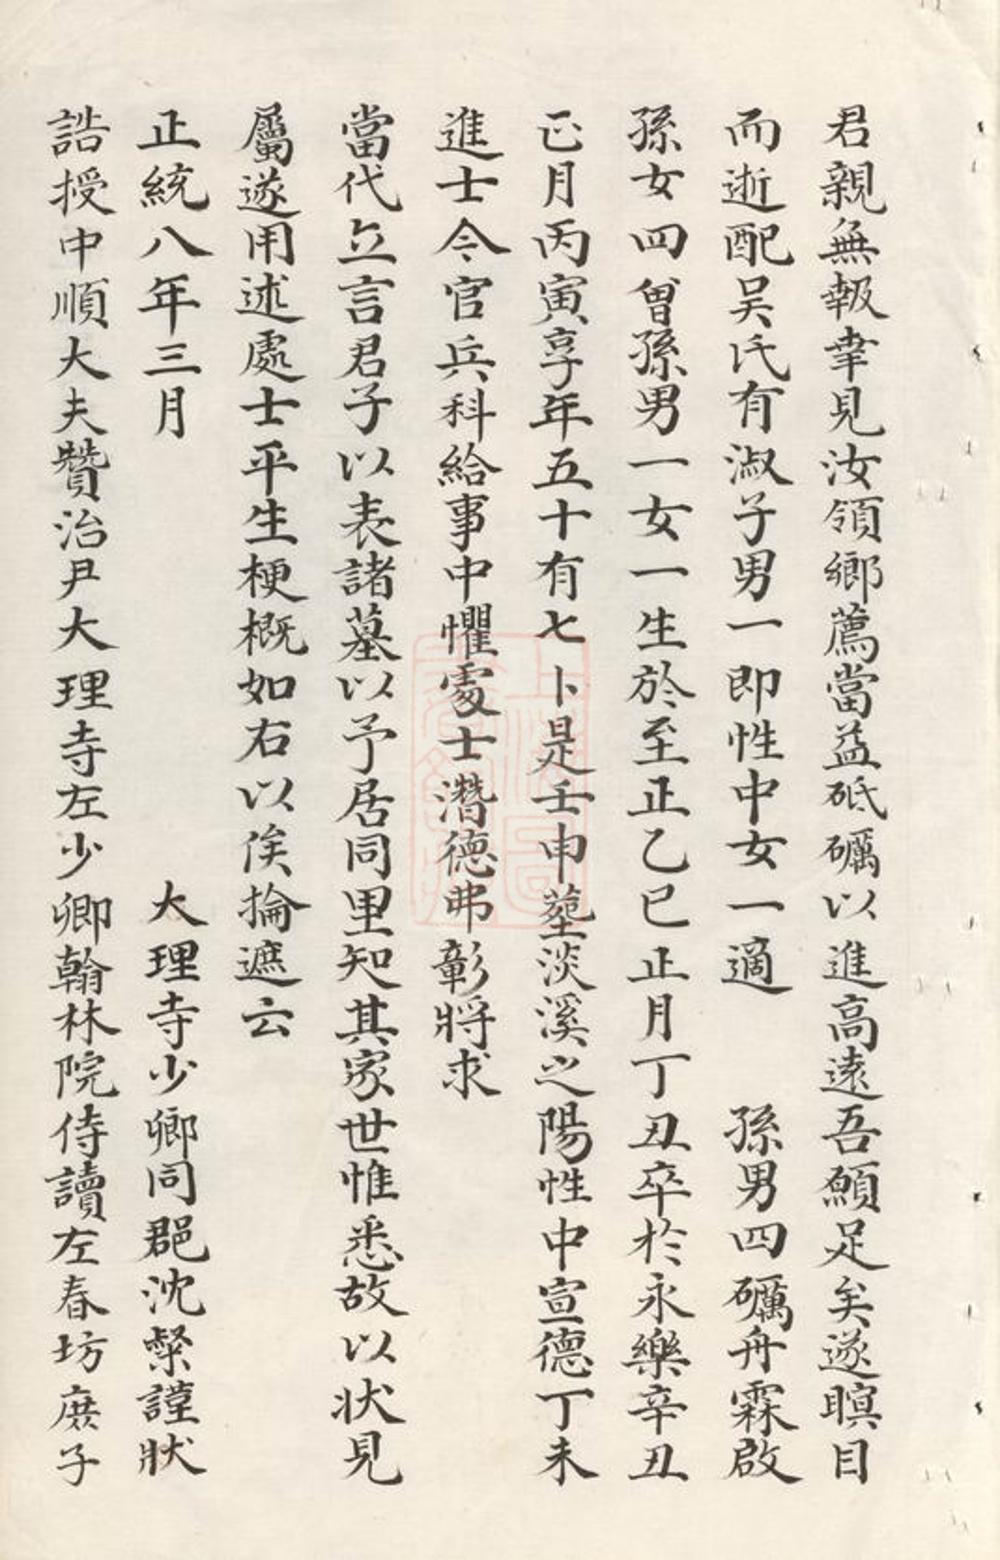 君親無報幸見汝領鄉薦當益砥礪以進高遠吾願足矣遂瞑目
而逝配吴氏有淑子男一即性中女一適　孫男四礪舟霖啟
孫女四曾孫男一女一生於至正乙巳正月丁丑卒於永樂辛丑
正月丙寅享年五十有七卜是壬申塟淡溪之陽性中宣德丁未
進士令官兵科給事中懼處士潛德弗彰將求
當代立言君子以表諸墓以予居同里知其家世惟悉故以状見
屬遂用述處士平生梗概如右以俟掄遮云
正統八年三月　大理寺少卿同郡沈檠謹狀
誥授中順大夫贊治尹大理寺左少卿翰林院侍讀左春坊庶子